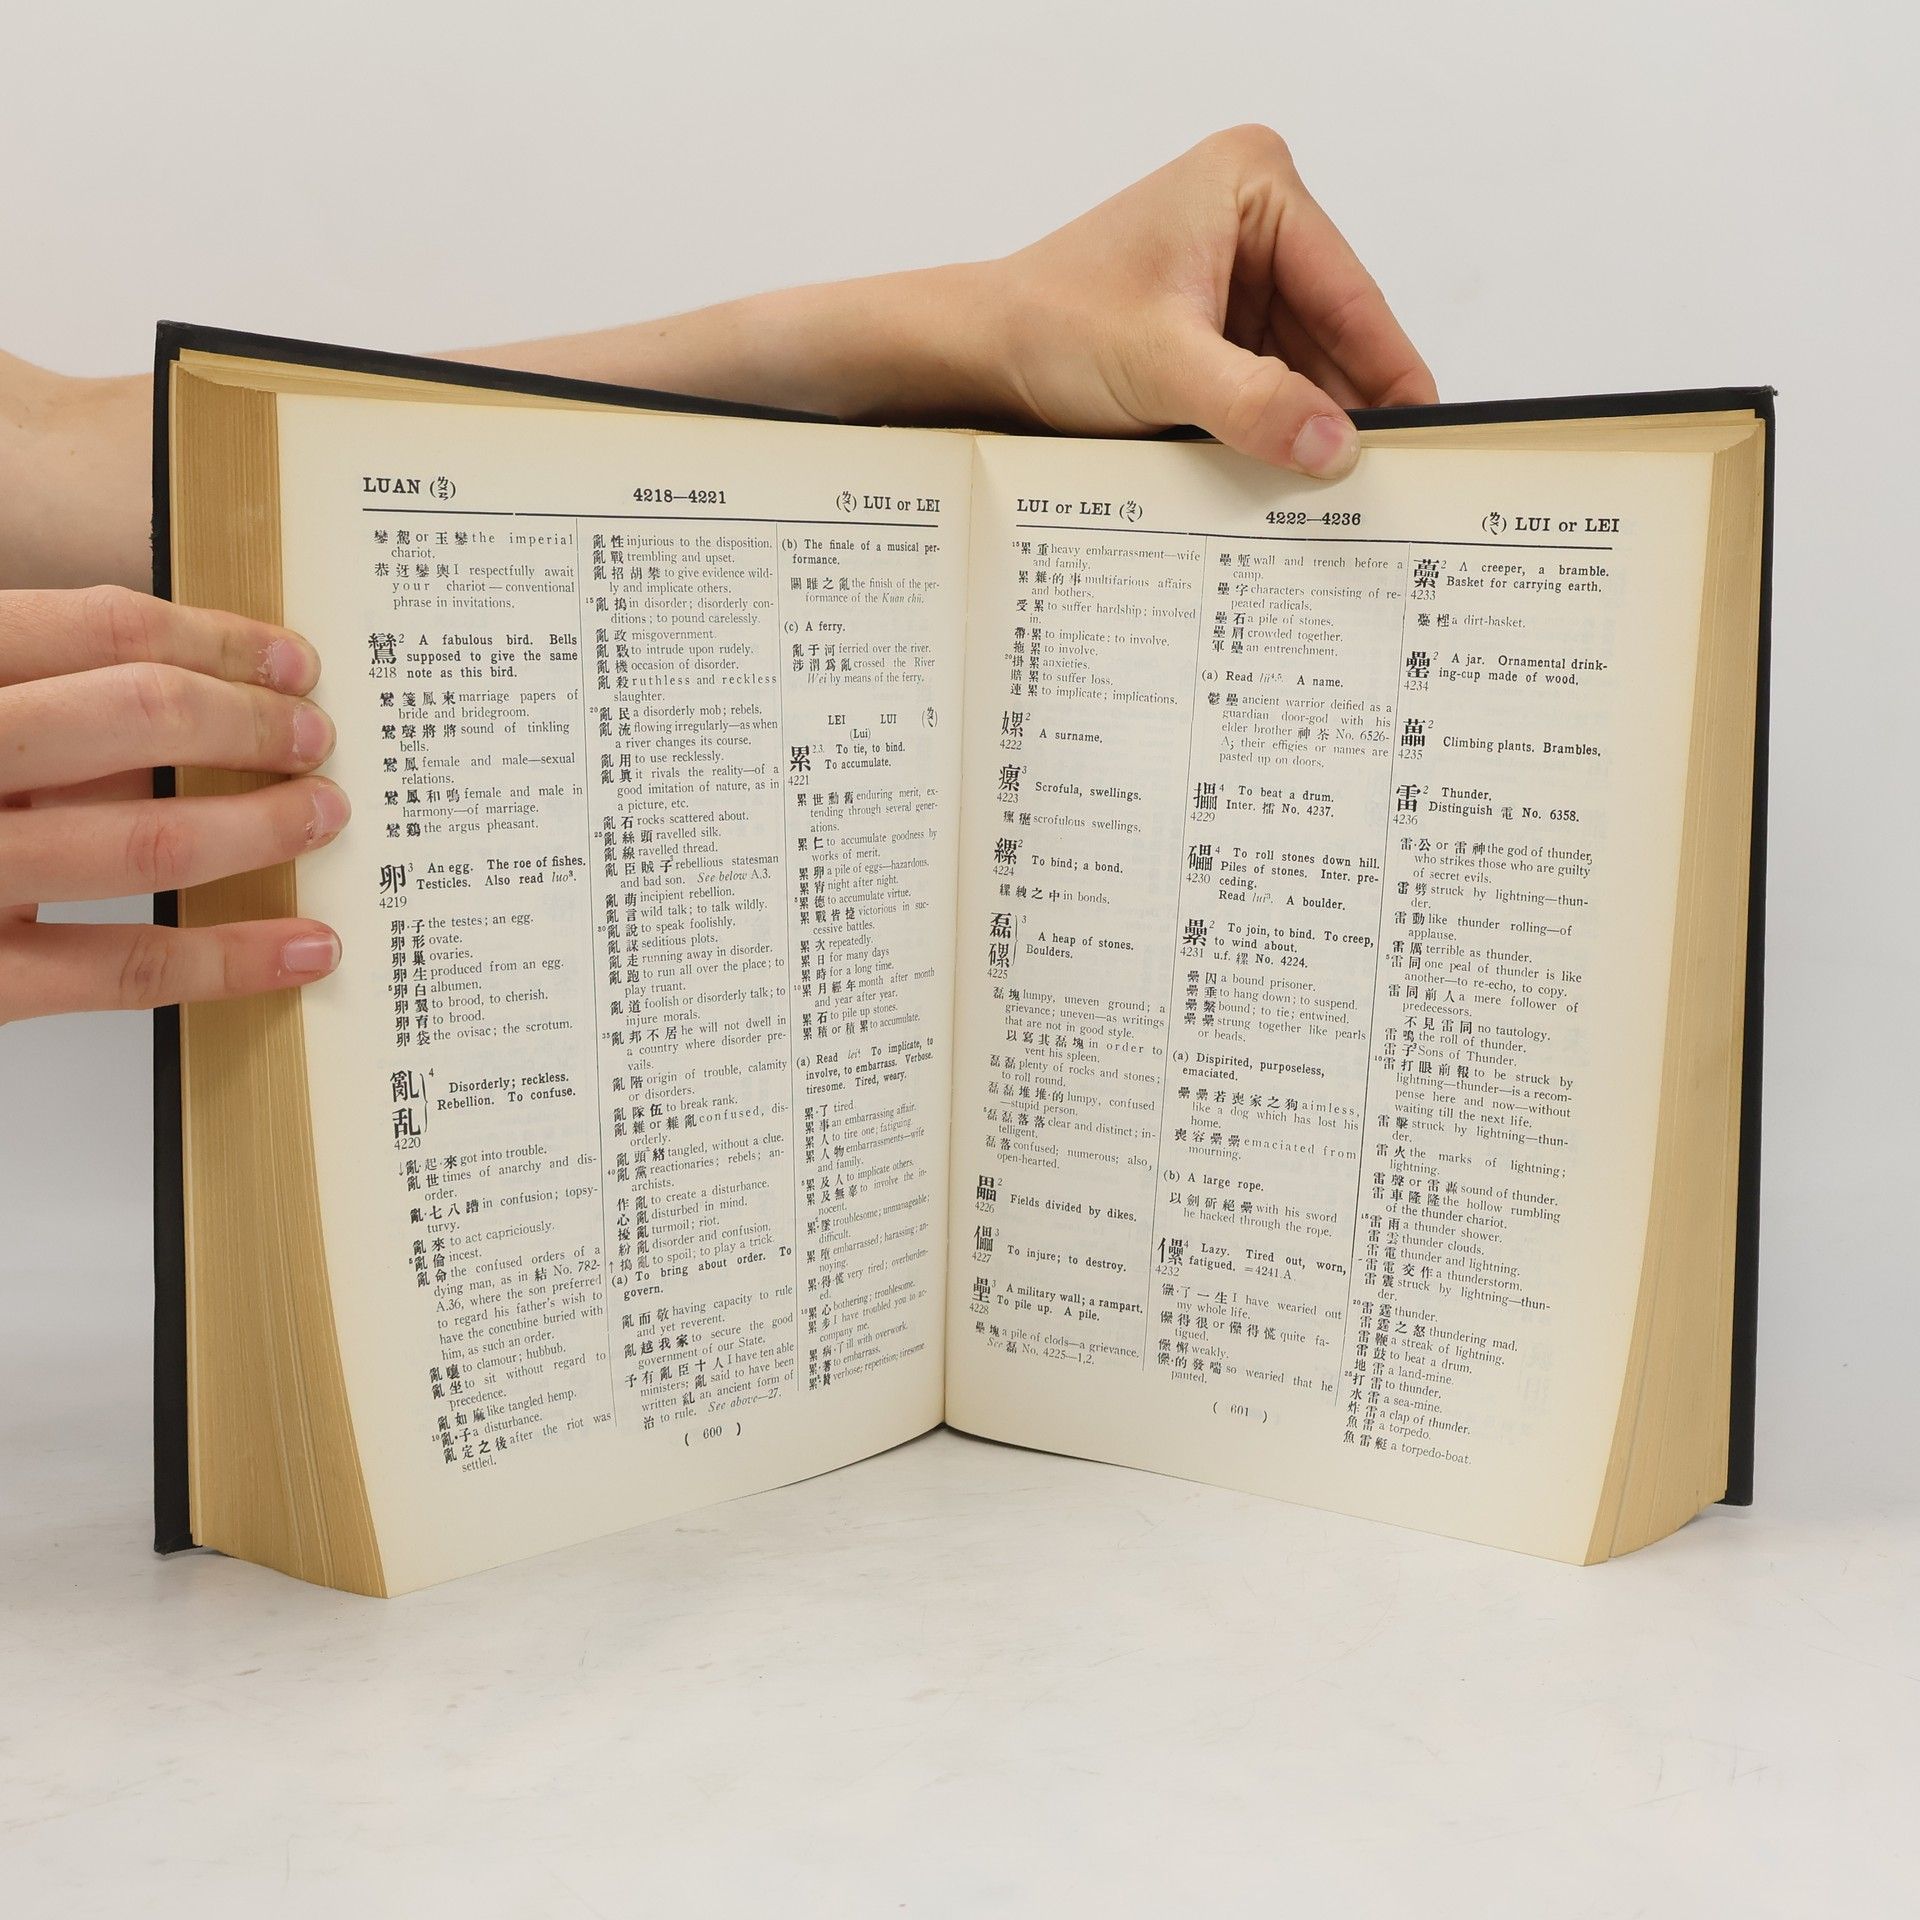 LUAN (ㄌㄨㄢ) 4218—4221 (ㄌㄨㄟ) LUI or LEI
鑾 駕 or 玉 鑾 the imperial
chariot.
恭 迓 鑾 輿 I respectfully await
your chariot—conventional
phrase in invitations.
鸞² A fabulous bird. Bells
supposed to give the same
4218 note as this bird.
鸞 箋 鳳 柬 marriage papers of
bride and bridegroom.
鸞 聲 將 將 sound of tinkling
bells.
鸞 鳳 female and male—sexual
relations.
鸞 鳳 和 鳴 female and male in
harmony—of marriage.
鸞 鷄 the argus pheasant.
卵³ An egg. The roe of fishes.
Testicles. Also read luo³.
4219
卵·子 the testes; an egg.
卵 形 ovate.
卵 巢 ovaries.
卵 生 produced from an egg.
⁵卵 白 albumen.
卵 翼 to brood, to cherish.
卵 育 to brood.
卵 袋 the ovisac; the scrotum.
亂⁴ Disorderly; reckless.
乱 Rebellion. To confuse.
4220
↓亂·起·來 got into trouble.
亂 世 times of anarchy and dis-
order.
亂·七 八 糟 in confusion; topsy-
turvy.
亂 來 to act capriciously.
⁵亂 倫 incest.
亂 命 the confused orders of a
dying man, as in 結 No. 782-
A.36, where the son preferred
to regard his father's wish to
have the concubine buried with
him, as such an order.
亂 嚷 to clamour; hubbub.
亂 坐 to sit without regard to
precedence.
亂 如 麻 like tangled hemp.
¹⁰亂·子 a disturbance.
亂 定 之 後 after the riot was
settled.
亂 性 injurious to the disposition.
亂 戰 trembling and upset.
亂 招 胡 攀 to give evidence wild-
ly and implicate others.
¹⁵亂 搗 in disorder; disorderly con-
ditions; to pound carelessly.
亂 政 misgovernment.
亂 to intrude upon rudely.
亂 機 occasion of disorder.
亂 殺 ruthless and reckless
slaughter.
²⁰亂 民 a disorderly mob; rebels.
亂 流 flowing irregularly—as when
a river changes its course.
亂 用 to use recklessly.
亂 眞 it rivals the reality—of a
good imitation of nature, as in
a picture, etc.
亂 石 rocks scattered about.
²⁵亂 絲 頭 ravelled silk.
亂 線 ravelled thread.
亂 臣 賊 子 rebellious statesman
and bad son. See below A.3.
亂 萌 incipient rebellion.
亂 言 wild talk; to talk wildly.
³⁰亂 說 to speak foolishly.
亂 謀 seditious plots.
亂 走 running away in disorder.
亂 跑 to run all over the place; to
play truant.
亂 道 foolish or disorderly talk; to
injure morals.
³⁵亂 邦 不 居 he will not dwell in
a country where disorder pre-
vails.
亂 階 origin of trouble, calamity
or disorders.
亂 隊 伍 to break rank.
亂 雜 or 雜 亂 confused, dis-
orderly.
亂 頭 緒 tangled, without a clue.
⁴⁰亂 黨 reactionaries; rebels; an-
archists.
作 亂 to create a disturbance.
心 亂 disturbed in mind.
擾 亂 turmoil; riot.
紛 亂 disorder and confusion.
↑搗 亂 to spoil; to play a trick.
(a) To bring about order. To
govern.
亂 而 敬 having capacity to rule
and yet reverent.
亂 越 我 家 to secure the good
government of our State.
予 有 亂 臣 十 人 I have ten able
ministers; 亂 said to have been
written 乿 an ancient form of
治 to rule. See above—27.
(b) The finale of a musical per-
formance.
關 雎 之 亂 the finish of the per-
formance of the Kuan chü.
(c) A ferry.
亂 于 河 ferried over the river.
涉 渭 爲 亂 crossed the River
Wei by means of the ferry.
LEI LUI (ㄌㄨㄟ)
(Lui)
累²·³· To tie, to bind.
To accumulate.
4221
累 世 勳 舊 enduring merit, ex-
tending through several gener-
ations.
累 仁 to accumulate goodness by
works of merit.
累 卵 a pile of eggs—hazardous.
累 宵 night after night.
⁵累 德 to accumulate virtue.
累 戰 皆 捷 victorious in suc-
cessive battles.
累 次 repeatedly.
累 日 for many days
累 時 for a long time.
¹⁰累 月 經 年 month after month
and year after year.
累 石 to pile up stones.
累 積 or 積 累 to accumulate.
(a) Read lei⁴ To implicate, to
involve, to embarrass. Verbose.
tiresome. Tired, weary.
累·了 tired.
累 事 an embarrassing affair.
累 人 to tire one; fatiguing
累 人 物 embarrassments—wife
and family.
⁵累 及 人 to implicate others.
累 及 無 辜 to involve the in-
nocent.
累·墜 troublesome; unmanageable;
difficult.
累 墮 embarrassed; harassing; an-
noying.
累·得·慌 very tired; overburden-
ed.
¹⁰累 心 bothering; troublesome.
累 步 I have troubled you to ac-
company me.
累 病·了 ill with overwork.
累·著 to embarrass.
累·贅 verbose; repetition; tiresome.
( 600 )
LUI or LEI (ㄌㄨㄟ) 4222—4236 (ㄌㄨㄟ) LUI or LEI
¹⁵累 重 heavy embarrassment—wife
and family.
累 雜·的 事 multifarious affairs
and bothers.
受 累 to suffer hardship; involved
in.
帶·累 to implicate; to involve.
拖 累 to involve.
²⁰掛 累 anxieties.
賠 累 to suffer loss.
連 累 to implicate; implications.
嫘² A surname.
4222
瘰³ Scrofula, swellings.
4223
瘰 癧 scrofulous swellings.
縲² To bind; a bond.
4224
縲 絏 之 中 in bonds.
磊³ A heap of stones.
磥 Boulders.
4225
磊 塊 lumpy, uneven ground; a
grievance; uneven—as writings
that are not in good style.
以 寫 其 磊 塊 in order to
vent his spleen.
磊 磊 plenty of rocks and stones;
to roll round.
磊 磊 堆 堆·的 lumpy, confused
—stupid person.
⁵磊 磊 落 落 clear and distinct; in-
telligent.
磊 落 confused; numerous; also,
open-hearted.
畾² Fields divided by dikes.
4226
儡³ To injure; to destroy.
4227
壘³ A military wall; a rampart.
To pile up. A pile.
4228
壘 塊 a pile of clods—a grievance.
See 磊 No. 4225—1,2.
壘 塹 wall and trench before a
camp.
壘 字 characters consisting of re-
peated radicals.
壘 石 a pile of stones.
壘 肩 crowded together.
軍 壘 an entrenchment.
(a) Read lü⁴·⁵· A name.
鬱 壘 ancient warrior deified as a
guardian door-god with his
elder brother 神 荼 No. 6526-
A; their effigies or names are
pasted up on doors.
擂⁴ To beat a drum.
Inter. 擂 No. 4237.
4229
礧⁴ To roll stones down hill.
Piles of stones. Inter. pre-
4230 ceding.
Read lui³. A boulder.
纍² To join, to bind. To creep,
to wind about.
4231 u.f. 縲 No. 4224.
纍 囚 a bound prisoner.
纍 垂 to hang down; to suspend.
纍 繫 bound; to tie; entwined.
纍 纍 strung together like pearls
or beads.
(a) Dispirited, purposeless,
emaciated.
纍 纍 若 喪 家 之 狗 aimless,
like a dog which has lost his
home.
喪 容 纍 纍 emaciated from
mourning.
(b) A large rope.
以 劍 斫 絕 纍 with his sword
he hacked through the rope.
儽⁴ Lazy. Tired out, worn,
fatigued. =4241 A
4232
儽·了 一 生 I have wearied out
my whole life.
儽 得 很 or 儽 得 慌 quite fa-
tigued.
儽 懈 weakly.
儽·的 發 喘 so wearied that he
panted.
虆² A creeper, a bramble.
Basket for carrying earth.
4233
虆 梩 a dirt-basket.
罍² A jar. Ornamental drink-
ing-cup made of wood.
4234
藟² Climbing plants. Brambles.
4235
雷² Thunder.
Distinguish 電 No. 6358.
4236
雷·公 or 雷 神 the god of thunder,
who strikes those who are guilty
of secret evils.
雷 劈 struck by lightning—thun-
der.
雷 動 like thunder rolling—of
applause.
雷 厲 terrible as thunder.
⁵雷 同 one peal of thunder is like
another—to re-echo, to copy.
雷 同 前 人 a mere follower of
predecessors.
不 見 雷 同 no tautology.
雷 鳴 the roll of thunder.
雷 子³ Sons of Thunder.
¹⁰雷 打 眼 前 報 to be struck by
lightning—thunder—is a recom-
pense here and now—without
waiting till the next life.
雷 擊 struck by lightning—thun-
der.
雷 火 the marks of lightning;
lightning.
雷 聲 or 雷 轟 sound of thunder.
雷 車 隆 隆 the hollow rumbling
of the thunder chariot.
¹⁵雷 雨 a thunder shower.
雷 雲 thunder clouds.
雷 電 thunder and lightning.
雷 電 交 作 a thunderstorm.
雷 震 struck by lightning—thun-
der.
²⁰雷 霆 thunder.
雷 霆 之 怒 thundering mad.
雷 鞭 a streak of lightning.
雷 鼓 to beat a drum.
地 雷 a land-mine.
²⁵打 雷 to thunder.
水 雷 a sea-mine.
炸 雷 a clap of thunder.
魚 雷 a torpedo.
魚 雷 艇 a torpedo-boat.
( 601 )